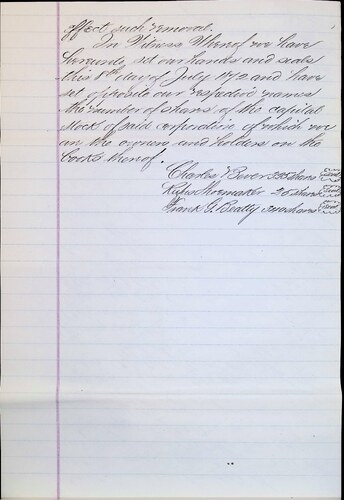 effect such removal.
In Witness Whereof we have
hereunto set our hands and seals
this 8th day of July 1912 and have
set opposite our respective names
the number of shares of the capital
stock of said corporation of which we
are the owners and holders on the
books thereof.
Charles Bever shares Seal
Rufus Shoemaker 25 shares Seal
Frank G. Beatty shares Seal